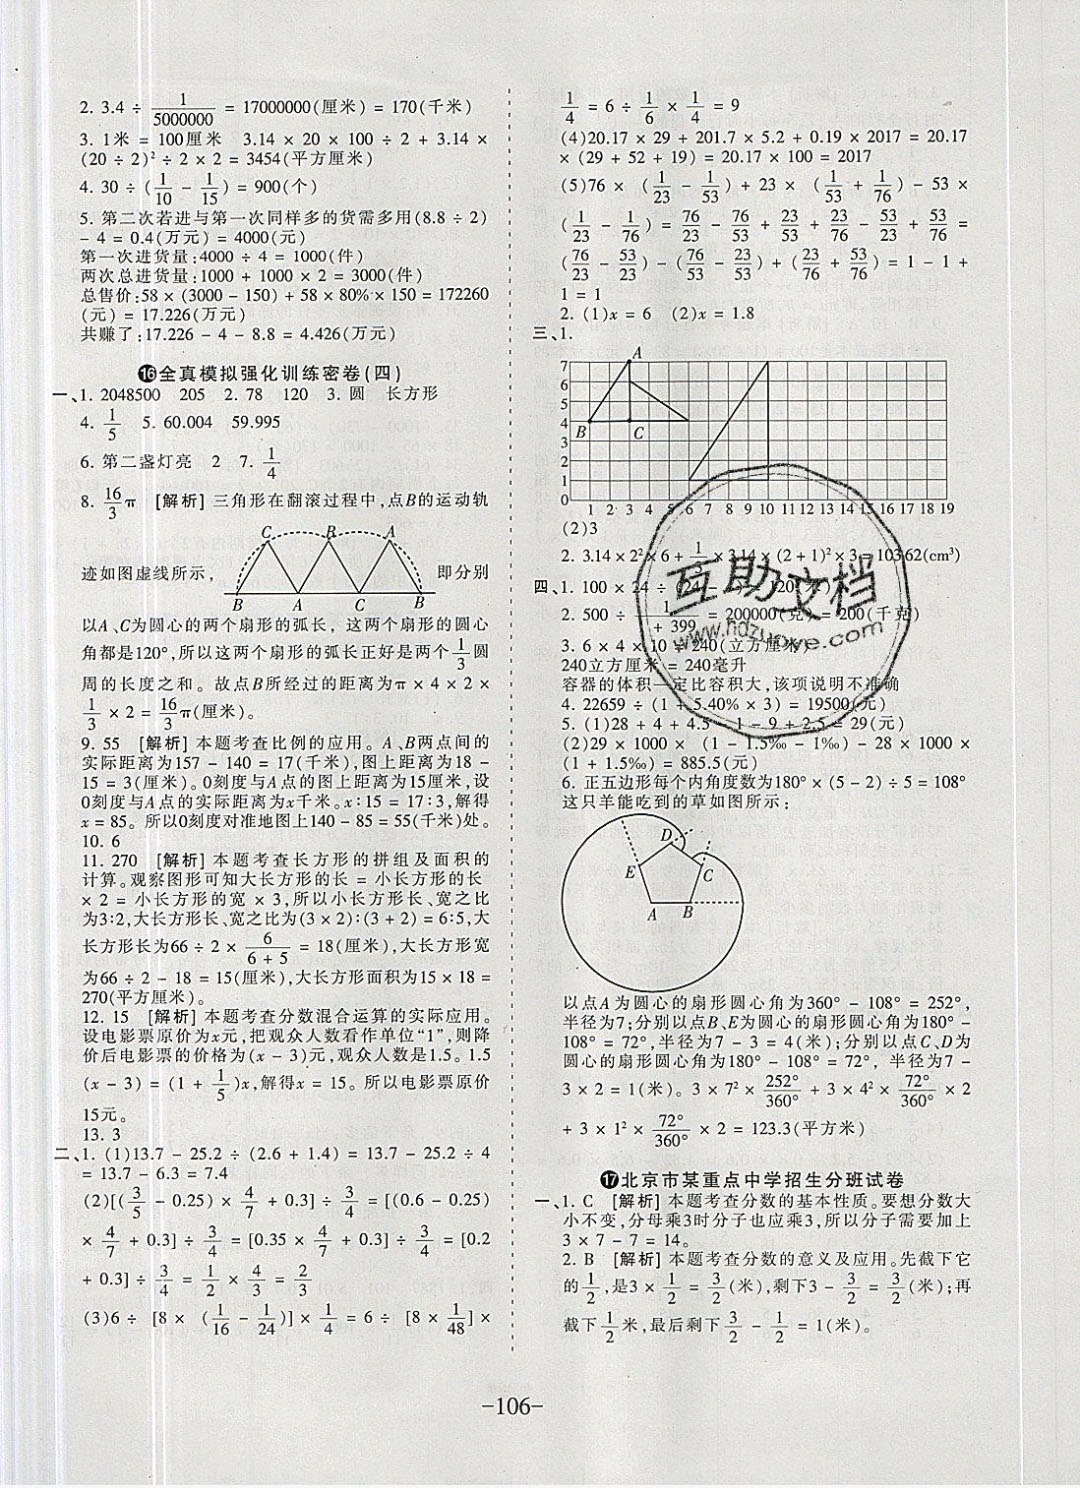 2. 3.4 ÷ 1/5000000 = 17000000(厘米) = 170(千米)
3. 1米 = 100厘米 3.14 × 20 × 100 ÷ 2 + 3.14 ×
(20 ÷ 2)² ÷ 2 × 2 = 3454(平方厘米)
4. 30 ÷ (1/10 - 1/15) = 900(个)
5. 第二次若进与第一次同样多的货需多用(8.8 ÷ 2)
- 4 = 0.4(万元) = 4000(元)
第一次进货量:4000 ÷ 4 = 1000(件)
两次总进货量:1000 + 1000 × 2 = 3000(件)
总售价:58 × (3000 - 150) + 58 × 80% × 150 = 172260
(元) = 17.226(万元)
共赚了:17.226 - 4 - 8.8 = 4.426(万元)
⓰全真模拟强化训练密卷(四)
一、1. 2048500 205 2. 78 120 3. 圆 长方形
4. 1/5 5. 60.004 59.995
6. 第二盏灯亮 2 7. 1/4
8. 16/3 π [解析] 三角形在翻滚过程中,点B的运动轨
C B A
迹如图虚线所示, 即分别
B A C B
以A、C为圆心的两个扇形的弧长, 这两个扇形的圆心
角都是120°,所以这两个扇形的弧长正好是两个1/3圆
周的长度之和。故点B所经过的距离为π × 4 × 2 ×
1/3 × 2 = 16/3 π(厘米)。
9. 55 [解析] 本题考查比例的应用。A、B两点间的
实际距离为157 - 140 = 17(千米),图上距离为18 -
15 = 3(厘米)。0刻度与A点的图上距离为15厘米,设
0刻度与A点的实际距离为x千米。x:15 = 17:3,解得
x = 85。所以0刻度对准地图上140 - 85 = 55(千米)处。
10. 6
11. 270 [解析] 本题考查长方形的拼组及面积的
计算。观察图形可知大长方形的长 = 小长方形的长
× 2 = 小长方形的宽 × 3,所以小长方形长、宽之比
为3:2,大长方形长、宽之比为(3 × 2):(3 + 2) = 6:5,大
长方形长为66 ÷ 2 × 6/(6 + 5) = 18(厘米),大长方形宽
为66 ÷ 2 - 18 = 15(厘米),大长方形面积为15 × 18 =
270(平方厘米)。
12. 15 [解析] 本题考查分数混合运算的实际应用。
设电影票原价为x元,把观众人数看作单位“1”,则降
价后电影票的价格为(x - 3)元,观众人数是1.5。1.5
(x - 3) = (1 + 1/5)x,解得x = 15。所以电影票原价
15元。
13. 3
二、1. (1)13.7 - 25.2 ÷ (2.6 + 1.4) = 13.7 - 25.2 ÷ 4
= 13.7 - 6.3 = 7.4
(2)[(3/5 - 0.25) × 4/7 + 0.3] ÷ 3/4 = [(0.6 - 0.25)
× 4/7 + 0.3] ÷ 3/4 = [0.35 × 4/7 + 0.3] ÷ 3/4 = [0.2
+ 0.3] ÷ 3/4 = 1/2 × 4/3 = 2/3
(3)6 ÷ [8 × (1/16 - 1/24)] × 1/4 = 6 ÷ [8 × 1/48] ×
1/4 = 6 ÷ 1/6 × 1/4 = 9
(4)20.17 × 29 + 201.7 × 5.2 + 0.19 × 2017 = 20.17
× (29 + 52 + 19) = 20.17 × 100 = 2017
(5)76 × (1/23 - 1/53) + 23 × (1/53 + 1/76) - 53 ×
(1/23 - 1/76) = 76/23 - 76/53 + 23/53 + 23/76 - 53/23 + 53/76 =
(76/23 - 53/23) - (76/53 - 23/53) + (23/76 + 53/76) = 1 - 1 +
1 = 1
2. (1)x = 6 (2)x = 1.8
三、1.
A
7
6
5
4
3
2
1
0
B C
1 2 3 4 5 6 7 8 9 10 11 12 13 14 15 16 17 18 19
(2)3
2. 3.14 × 2² × 6 + 1/3 × 3.14 × (2 + 1)² × 3 = 103.62(cm³)
四、1. 100 × 24 ÷ (24 - 120(元)
2. 500 ÷ 1/(1 + 399) = 200000(克) = 200(千克)
3. 6 × 4 × 10 = 240(立方厘米)
240立方厘米 = 240毫升
容器的体积一定比容积大,该项说明不准确
4. 22659 ÷ (1 + 5.40% × 3) = 19500(元)
5. (1)28 + 4 + 4.5 - 1 - 9 + 2.5 = 29(元)
(2)29 × 1000 × (1 - 1.5‰ - 1‰) - 28 × 1000 ×
(1 + 1.5‰) = 885.5(元)
6. 正五边形每个内角度数为180° × (5 - 2) ÷ 5 = 108°
这只羊能吃到的草如图所示:
D
E C
A B
以点A为圆心的扇形圆心角为360° - 108° = 252°,
半径为7;分别以点B、E为圆心的扇形圆心角为180° -
108° = 72°,半径为7 - 3 = 4(米);分别以点C、D为
圆心的扇形圆心角为180° - 108° = 72°, 半径为7 -
3 × 2 = 1(米)。3 × 7² × 252°/360° + 3 × 4² × 72°/360° × 2
+ 3 × 1² × 72°/360° × 2 = 123.3(平方米)
⓱北京市某重点中学招生分班试卷
一、1. C [解析] 本题考查分数的基本性质。要想分数大
小不变,分母乘3时分子也应乘3,所以分子需要加上
3 × 7 - 7 = 14。
2. B [解析] 本题考查分数的意义及应用。先截下它
的1/2,是3 × 1/2 = 3/2(米),剩下3 - 3/2 = 3/2(米);再
截下1/2米,最后剩下3/2 - 1/2 = 1(米)。
互助文档
www.hdzuoye.com
-106-